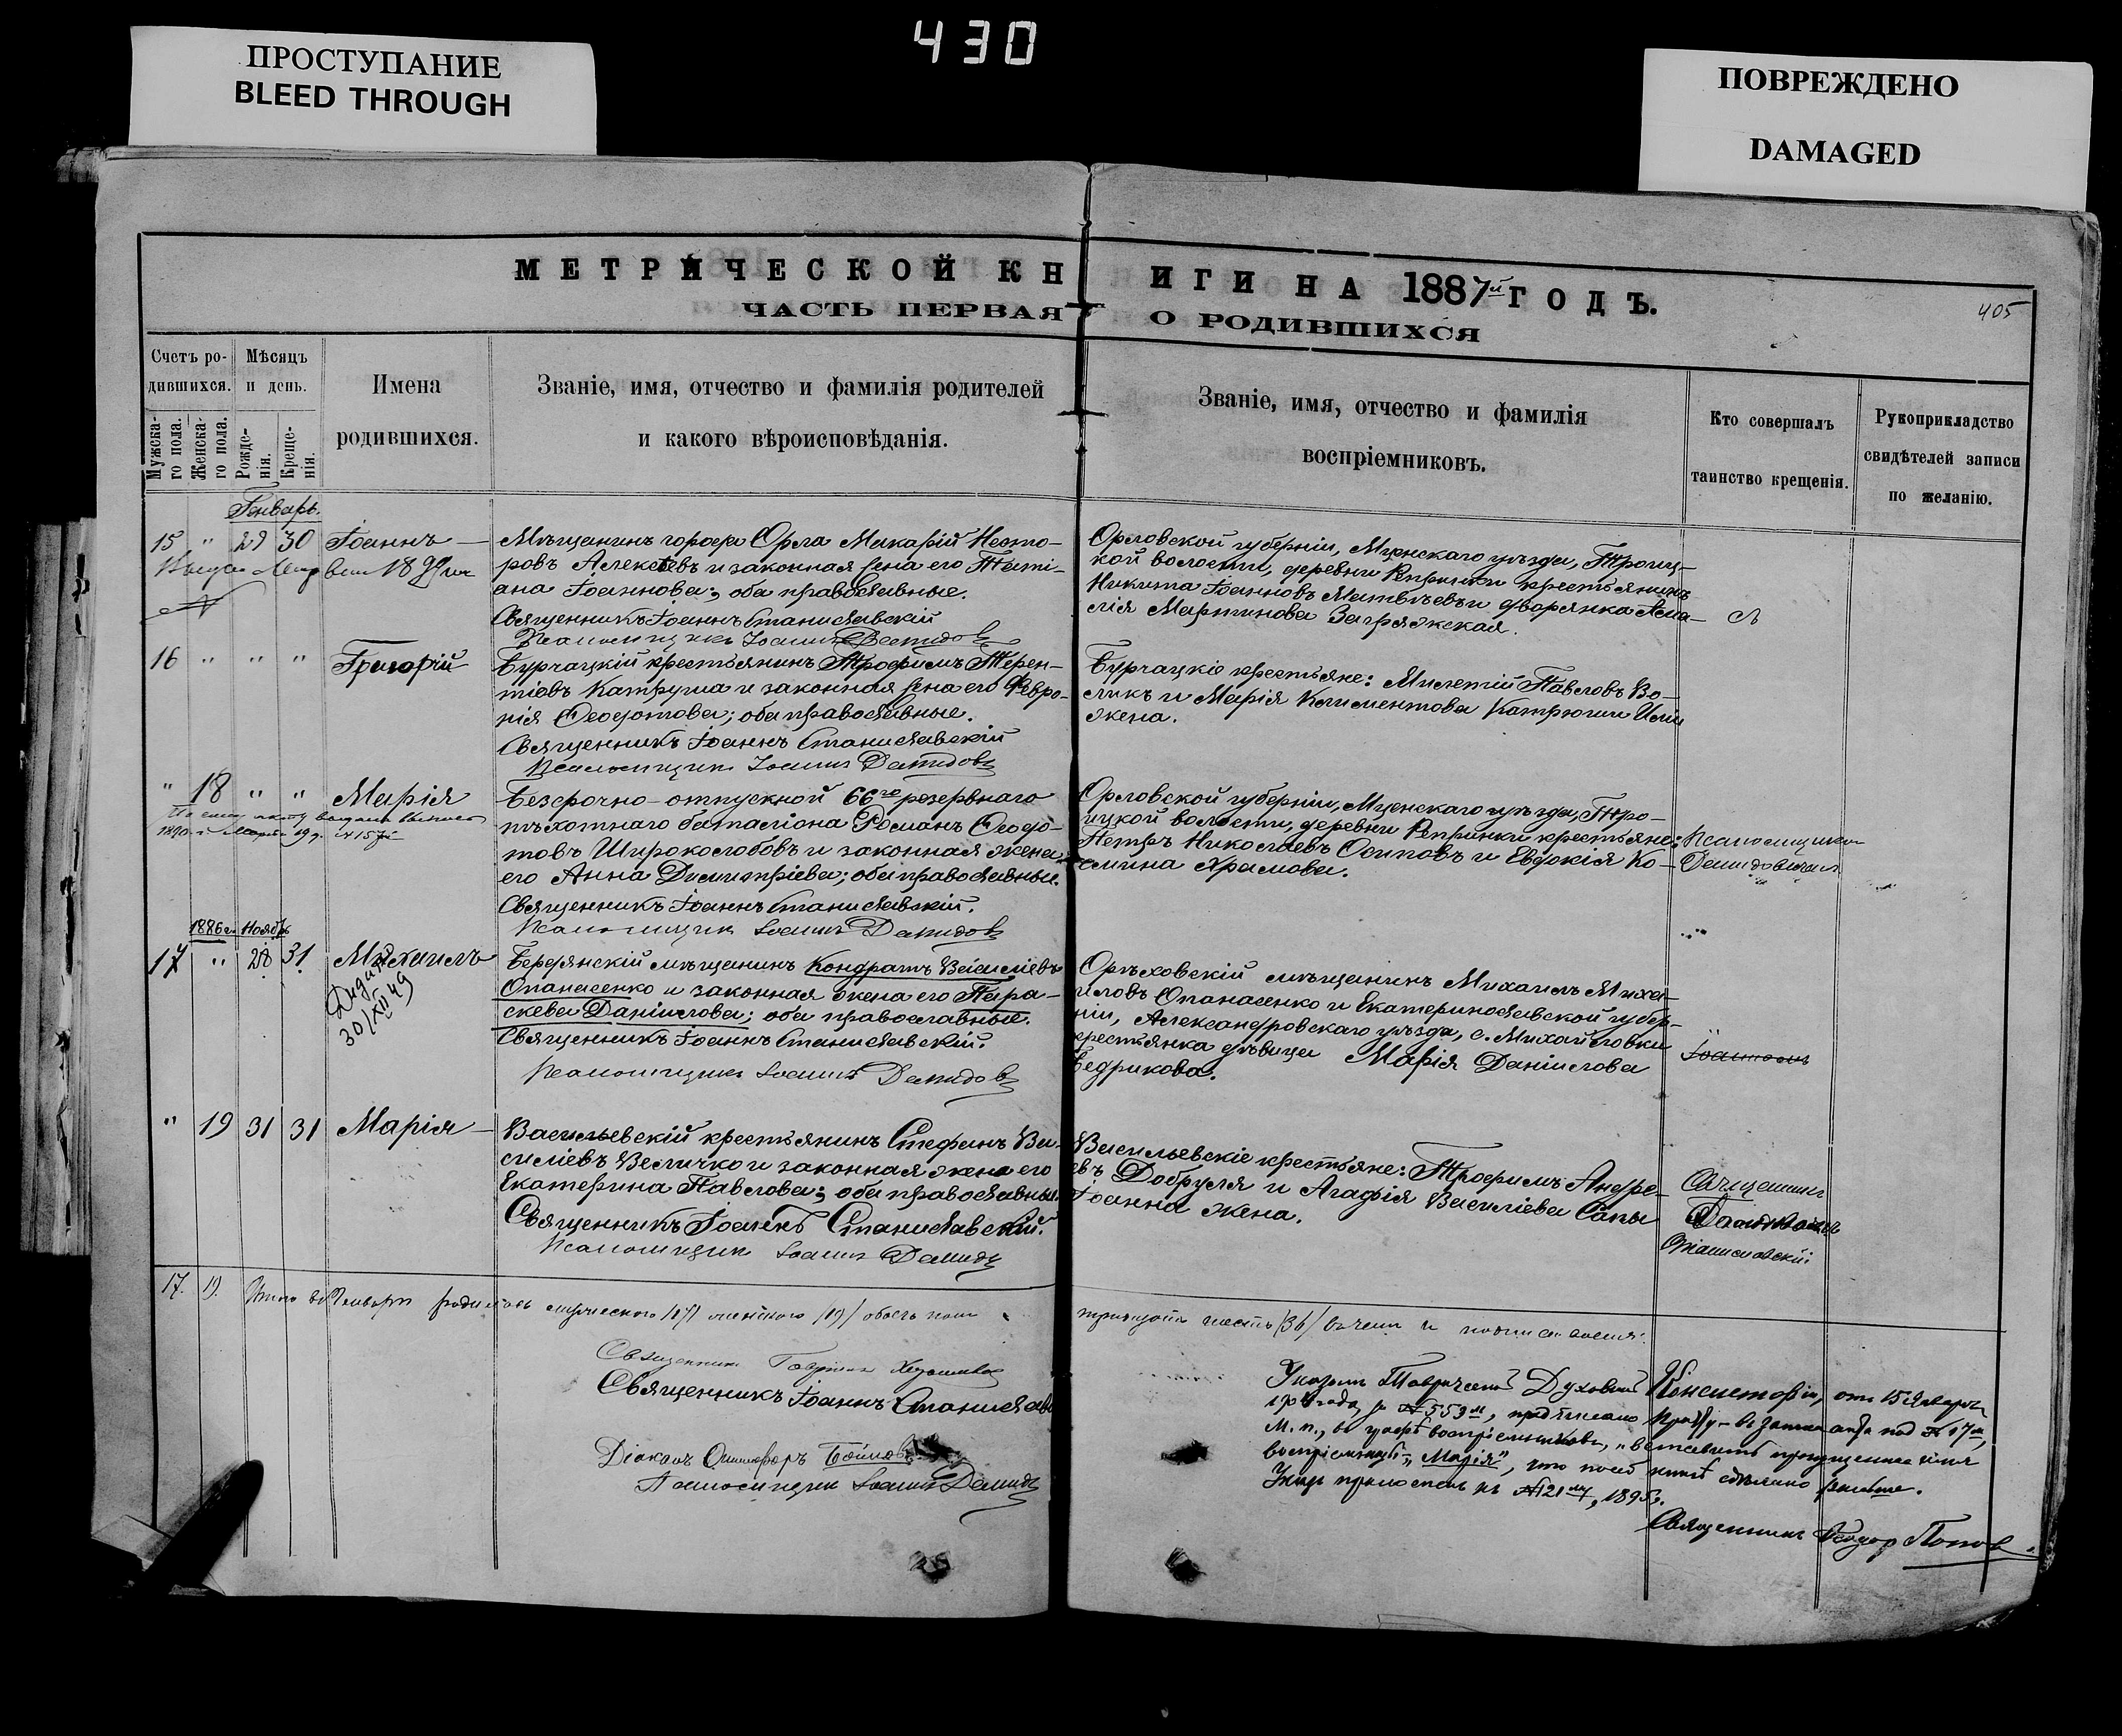 430
ПРОСТУПАНИЕ
BLEED THROUGH
ПОВРЕЖДЕНО
DAMAGED
МЕТРИЧЕСКОЙ КНИГИ НА 1887й ГОДЪ.
405
ЧАСТЬ ПЕРВАЯ О РОДИВШИХСЯ
Счетъ ро-
дившихся.
Мужска-
го пола.
Женска-
го пола.
Мѣсяцъ
и день.
Рожде-
нія.
Креще-
нія.
Имена
родившихся.
Званіе, имя, отчество и фамилія родителей
и какого вѣроисповѣданія.
Званіе, имя, отчество и фамилія
воспріемниковъ.
Кто совершалъ
таинство крещенія.
Рукоприкладство
свидѣтелей записи
по желанію.
Генварь.
15 " 29 30 Іоаннъ
Мѣщанинъ города Орла Макарій Несто-
ровъ Алексѣевъ и законная жена его Таті-
ана Іоаннова; оба православные.
Священникъ Іоаннъ Станиславскій
Псаломщикъ Іоаннъ Демидовъ
Орловской губерніи, Мценскаго уѣзда, Троиц-
кой волости, деревни крестьянинъ
Никита Іоанновъ Матвѣевъ и дворянка
лія Мартинова Загряжская.
16 " " " Григорій
Бурчацкій крестьянинъ Трофимъ Терен-
тіевъ и законная жена его Февро-
нія Ѳеодотова; оба православные.
Священникъ Іоаннъ Станиславскій
Псаломщикъ Іоаннъ Демидовъ
Бурчацкіе крестьяне: Милетій Павловъ Во-
ликъ и Марія Климентова
жена.
" 18 " " Марія
1890 г. Марта 19 д.
Безсрочно-отпускной 66го резервнаго
пѣхотнаго баталіона Романъ Ѳеодо-
товъ Широкослобовъ и законная жена
его Анна Димитріева; оба православные.
Священникъ Іоаннъ Станиславскій.
Псаломщикъ Іоаннъ Демидовъ
Орловской губерніи, Мценскаго уѣзда, Тро-
ицкой волости, деревни крестьяне:
Петръ Николаевъ Осиповъ и Евдокія Ко-
смина Храмова.
1886 г. Ноябрь
17 " 28 31 Михаилъ
30/XII 49
Бердянскій мѣщанинъ Кондратъ Василіевъ
Опанасенко и законная жена его Пара-
скева Даніилова; оба православные.
Священникъ Іоаннъ Станиславскій.
Псаломщикъ Іоаннъ Демидовъ
Орѣховскій мѣщанинъ Михаилъ Миха-
иловъ Опанасенко и Екатеринославской губер-
ніи, Александровскаго уѣзда, с. Михайловки
крестьянка дѣвица Марія Даніилова
Бедрикова.
" 19 31 31 Марія
Васильевскій крестьянинъ Стефанъ Ва-
силіевъ Величко и законная жена его
Екатерина Павлова; оба православные.
Священникъ Іоаннъ Станиславскій.
Псаломщикъ Іоаннъ Демидовъ
Васильевскіе крестьяне: Трофимъ Андре-
евъ Добруля и Агафія Василіева Сапы
Іоанна жена.
Священникъ
Станиславскій
17. 19. Итого въ Генварѣ родилось мужеского /17/ женского /19/ обоего пола
тридцать шесть /36/
Священникъ Гавріилъ
Священникъ Іоаннъ Станиславскій
Діаконъ
Псаломщикъ Іоаннъ Демидовъ
Указомъ Таврической Духовной Консисторіи, отъ 15 Января
года за № 553м, предписано въ записи акта под № 17м,
М. п., въ графѣ воспріемниковъ, "вставить пропущенное имя
воспріемницы "Марія", что мной симъ сдѣлано
Указъ приложенъ къ № 121му, 1895 г.
Священникъ Ѳеодоръ Поповъ.